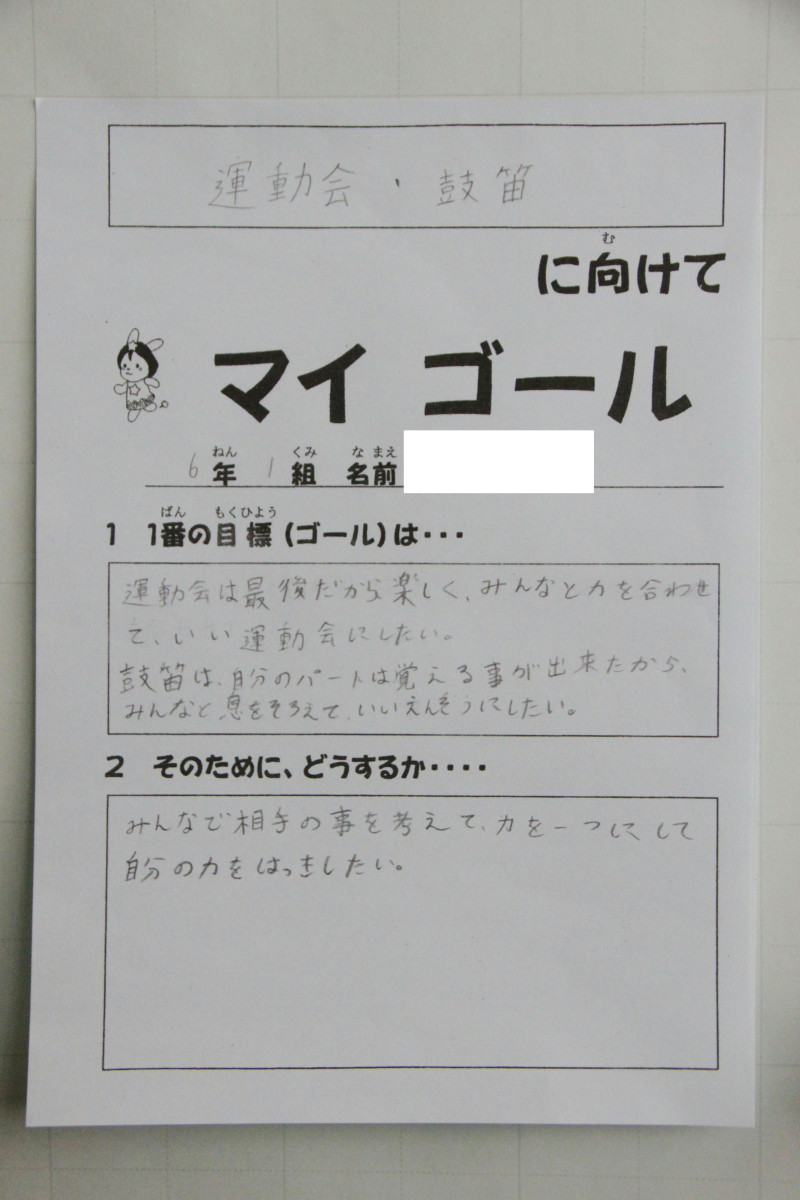 運動会・鼓笛
に向けて
マイ ゴール
6年 1組 名前
1 1番の目標(ゴール)は・・・
運動会は最後だから楽しく、みんなと力を合わせ
て、いい運動会にしたい。
鼓笛は、自分のパートは覚える事が出来たから、
みんなと息をそろえて、いいえんそうにしたい。
2 そのために、どうするか・・・・
みんなで相手の事を考えて、力を一つにして
自分の力をはっきしたい。